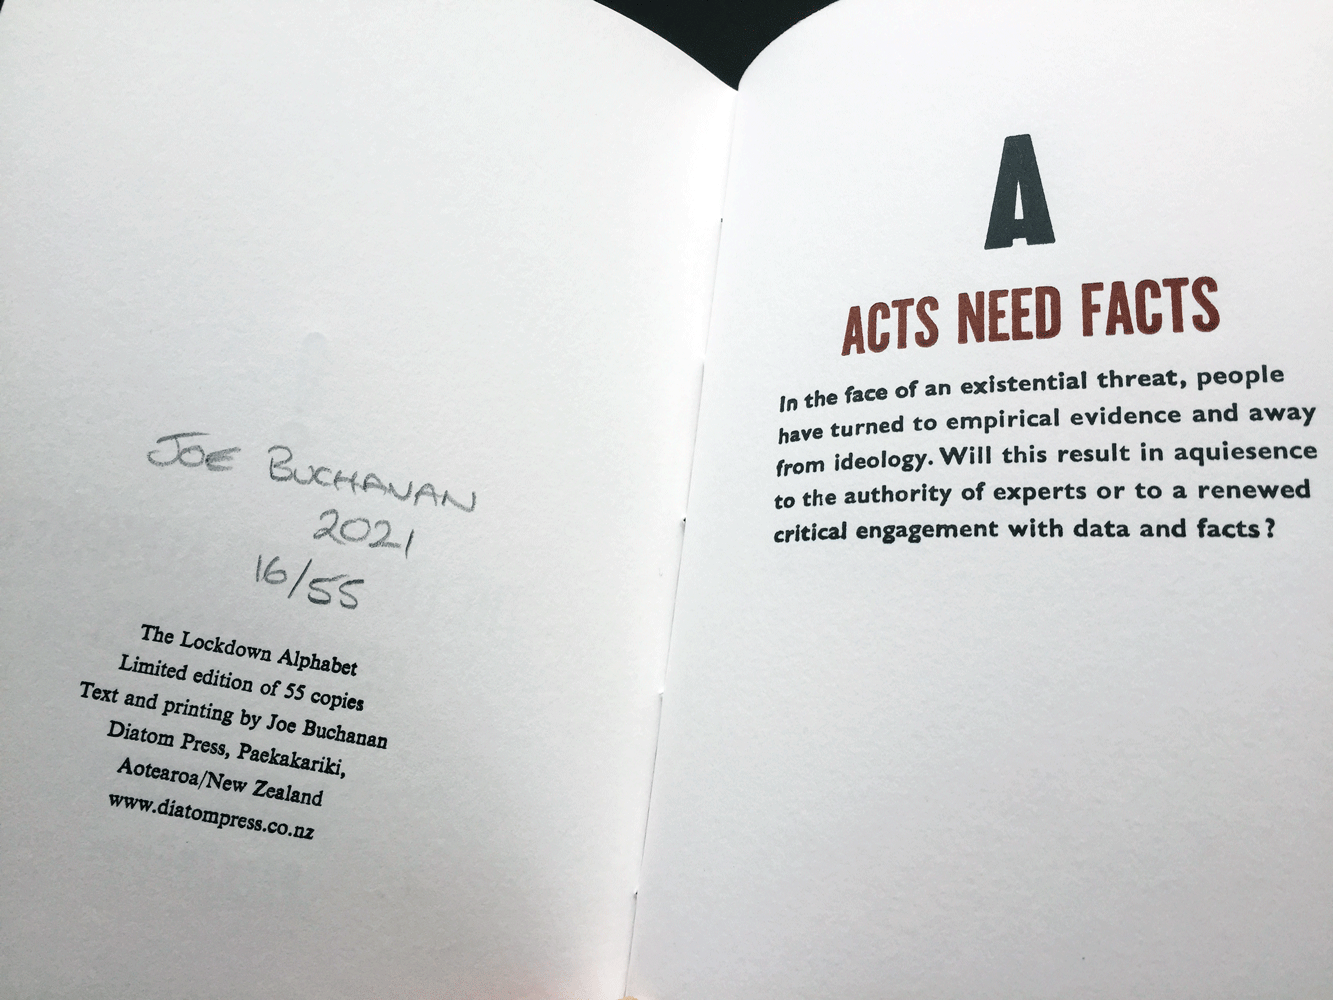 JOE BUCHANAN
2021
16/55
The Lockdown Alphabet
Limited edition of 55 copies
Text and printing by Joe Buchanan
Diatom Press, Paekakariki,
Aotearoa/New Zealand
www.diatompress.co.nz
A
ACTS NEED FACTS
In the face of an existential threat, people
have turned to empirical evidence and away
from ideology. Will this result in aquiesence
to the authority of experts or to a renewed
critical engagement with data and facts?